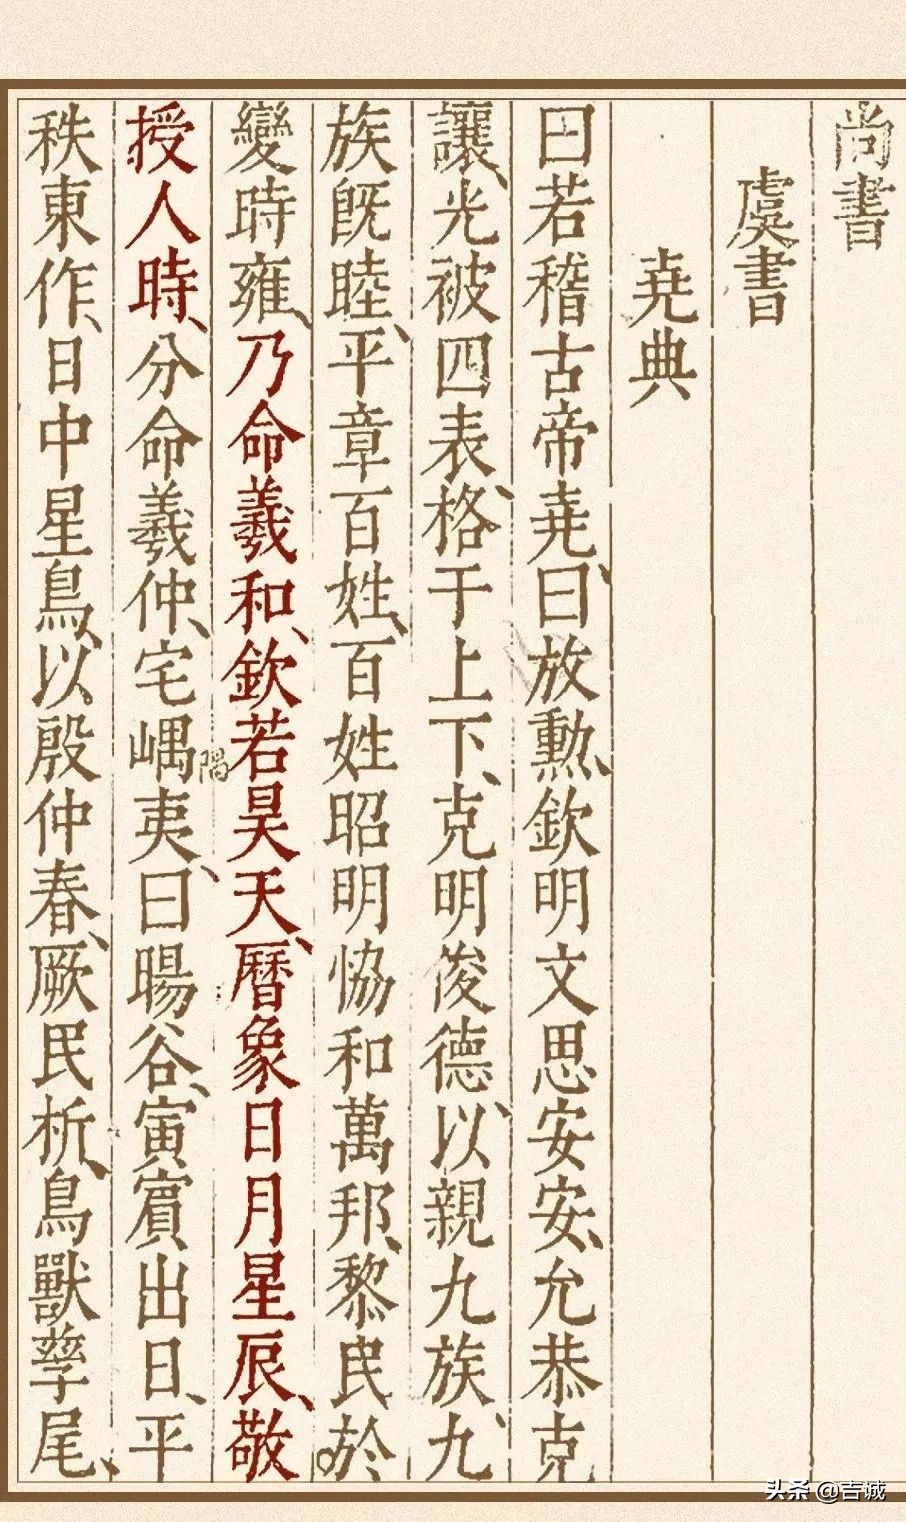 尚書
虞書
尭典
曰若稽古帝尭、曰放勲、欽明文思安安、允恭克
讓、光被四表、格于上下、克明俊德、以親九族、九
族既睦、平章百姓、百姓昭明恊和萬邦、黎民於
變時雍、乃命羲和、欽若昊天、曆象日月星辰、敬
隅
授人時、分命羲仲、宅嵎夷、曰暘谷、寅賓出日、平
秩東作、日中星鳥、以殷仲春、厥民析、鳥獸孳尾、
头条 @吉诚